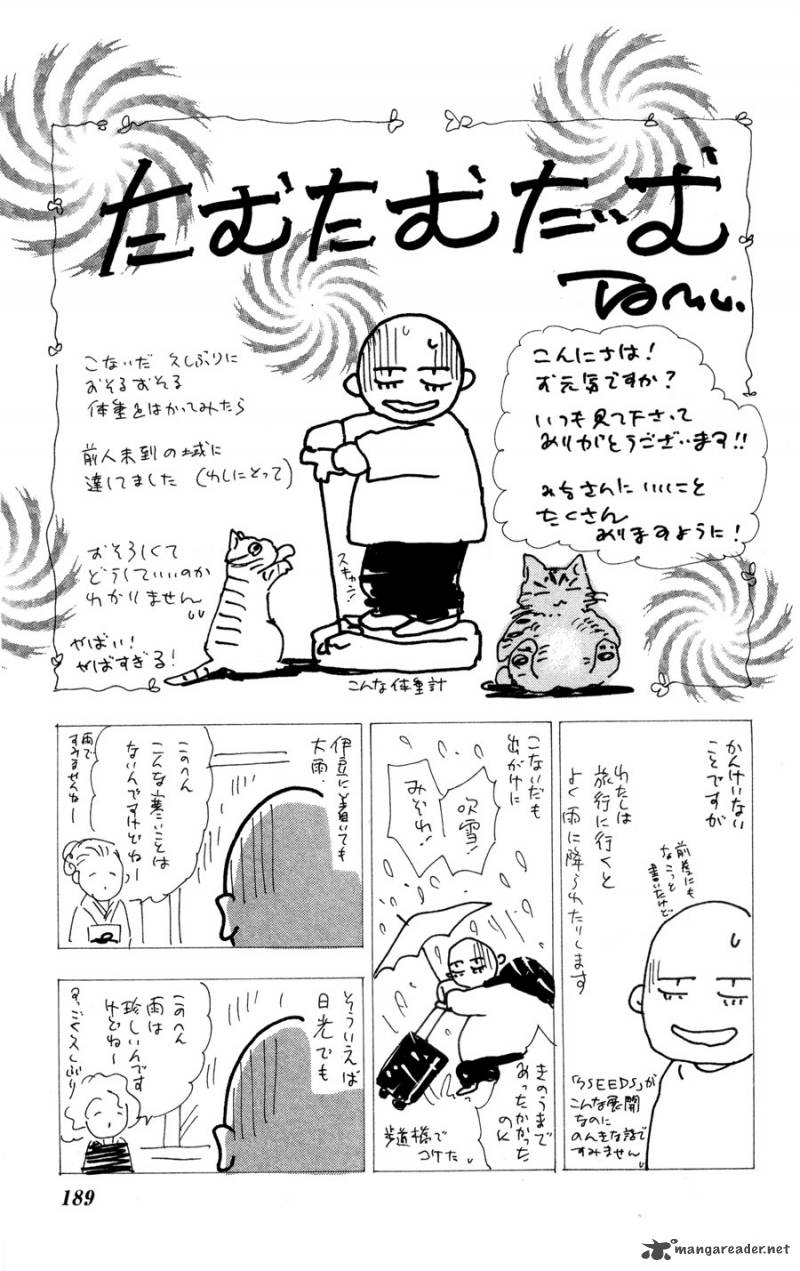 たむたむだーむ
Tamu.
こんにちは!
お元気ですか?
いつも見て下さって
ありがとうございます!!
みなさんにいいこと
たくさん
ありますように!
こないだ 久しぶりに
おそるおそる
体重をはかってみたら
前人未到の域に
達してました (わしにとって)
おそろしくて
どうしていいのか
わかりません
やばい!
やばすぎる!
こんな体重計
かんけいない
ことですが
わたしは
旅行に行くと
よく雨に降られたりします
前巻にも
ちょこっと
書いたけど
「7SEEDS」が
こんな展開
なのに
のんきな話で
すみません
こないだも
出がけに
吹雪!
みぞれ!
きのうまで
あったかかった
のに
歩道橋で
コケた
伊豆に着いても
大雨.
このへん
こんな寒いことは
ないんですけどねー
雨で
すみませんねー
そういえば
日光でも
このへん
雨は
珍しいんです
けどねー
すっごく久しぶり
189
mangareader.net